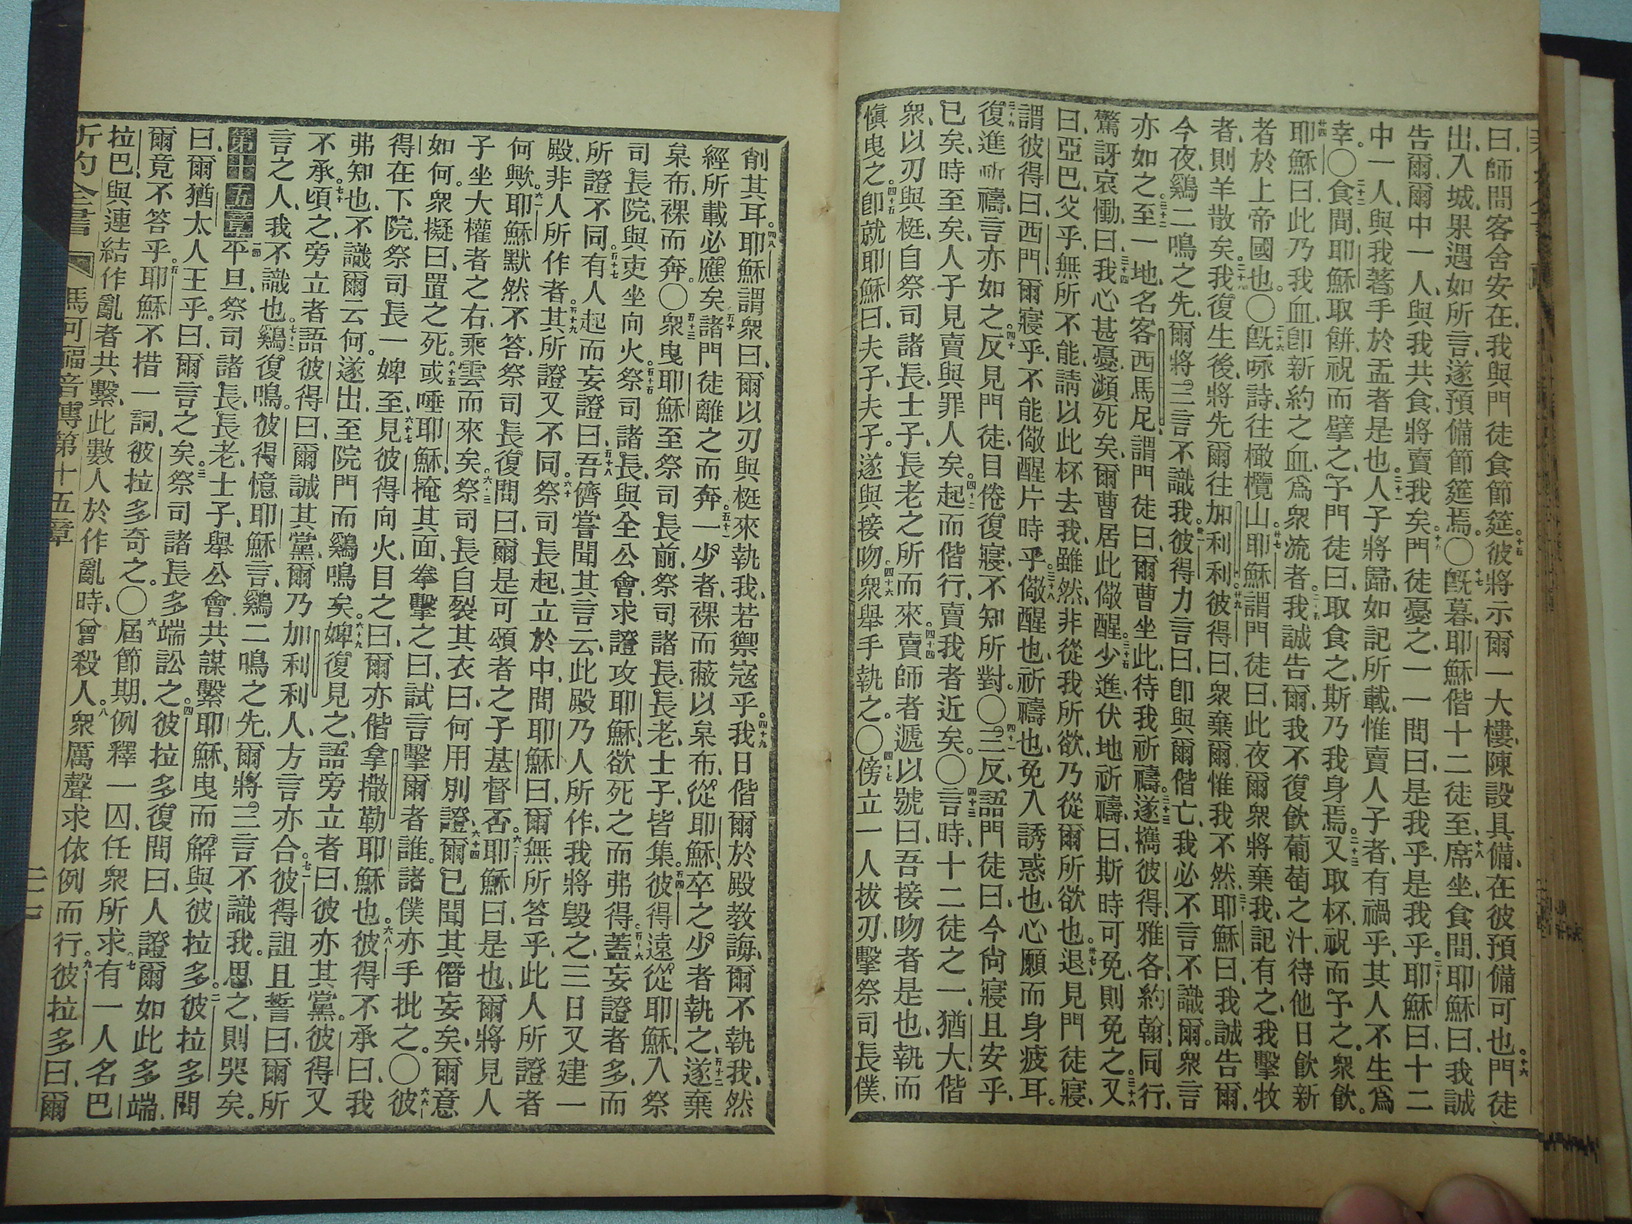 曰師問客舍安在我與門徒食節筵彼將示爾一大樓陳設具備在彼預備可也門徒
出入城果遇如所言遂預備節筵焉〇旣暮耶穌偕十二徒至席坐食間耶穌曰我誠
告爾爾中一人與我共食將賣我矣門徒憂之一一問曰是我乎是我乎耶穌曰十二
中一人與我著手於盂者是也人子將歸如記所載惟賣人子者有禍乎其人不生爲
幸〇食間耶穌取餅祝而擘之予門徒曰取食之斯乃我身焉又取杯祝而予之衆飲
耶穌曰此乃我血卽新約之血爲衆流者我誠告爾我不復飲葡萄之汁待他日飲新
者於上帝國也〇旣咏詩往橄欖山耶穌謂門徒曰此夜爾衆將棄我記有之我擊牧
者則羊散矣我復生後將先爾往加利利彼得曰衆棄爾惟我不然耶穌曰我誠告爾
今夜鷄二鳴之先爾將三言不識我彼得力言曰卽與爾偕亡我必不言不識爾衆言
亦如之至一地名客西馬尼謂門徒曰爾曹坐此待我祈禱遂攜彼得雅各約翰同行
驚訝哀慟曰我心甚憂瀕死矣爾曹居此儆醒少進伏地祈禱曰斯時可免則免之又
曰亞巴父乎無所不能請以此杯去我雖然非從我所欲乃從爾所欲也退見門徒寢
謂彼得曰西門爾寢乎不能儆醒片時乎儆醒也祈禱也免入誘惑也心願而身疲耳
復進祈禱言亦如之反見門徒目倦復寢不知所對〇三反語門徒曰今尙寢且安乎
已矣時至矣人子見賣與罪人矣起而偕行賣我者近矣〇言時十二徒之一猶大偕
衆以刃與梃自祭司諸長士子長老之所而來賣師者遞以號曰吾接吻者是也執而
愼曳之卽就耶穌曰夫子夫子遂與接吻衆舉手執之〇傍立一人拔刃擊祭司長僕
削其耳耶穌謂衆曰爾以刃與梃來執我若禦寇乎我日偕爾於殿教誨爾不執我然
經所載必應矣諸門徒離之而奔一少者裸而蔽以枲布從耶穌卒之少者執之遂棄
枲布裸而奔〇衆曳耶穌至祭司長前祭司諸長長老士子皆集彼得遠從耶穌入祭
司長院與吏坐向火祭司諸長與全公會求證攻耶穌欲死之而弗得蓋妄證者多而
所證不同有人起而妄證曰吾儕嘗聞其言云此殿乃人所作我將毀之三日又建一
殿非人所作者其所證又不同祭司長起立於中問耶穌曰爾無所答乎此人所證者
何歟耶穌默然不答祭司長復問曰爾是可頌者之子基督否耶穌曰是也爾將見人
子坐大權者之右乘雲而來矣祭司長自裂其衣曰何用別證爾已聞其僭妄矣爾意
如何衆擬曰置之死或唾耶穌掩其面拳擊之曰試言擊爾者誰諸僕亦手批之〇彼
得在下院祭司長一婢至見彼得向火目之曰爾亦偕拿撒勒耶穌也彼得不承曰我
弗知也不識爾云何遂出至院門而鷄鳴矣婢復見之語旁立者曰彼亦其黨彼得又
不承頃之旁立者語彼得曰爾誠其黨爾乃加利利人方言亦合彼得詛且誓曰爾所
言之人我不識也鷄復鳴彼得憶耶穌言鷄二鳴之先爾將三言不識我思之則哭矣
第十五章平旦祭司諸長長老士子舉公會共謀繫耶穌曳而解與彼拉多彼拉多問
曰爾猶太人王乎曰爾言之矣祭司諸長多端訟之彼拉多復問曰人證爾如此多端
爾竟不答乎耶穌不措一詞彼拉多奇之〇屆節期例釋一囚任衆所求有一人名巴
拉巴與連結作亂者共繫此數人於作亂時曾殺人衆厲聲求依例而行彼拉多曰爾
新約全書 馬可福音傳第十五章